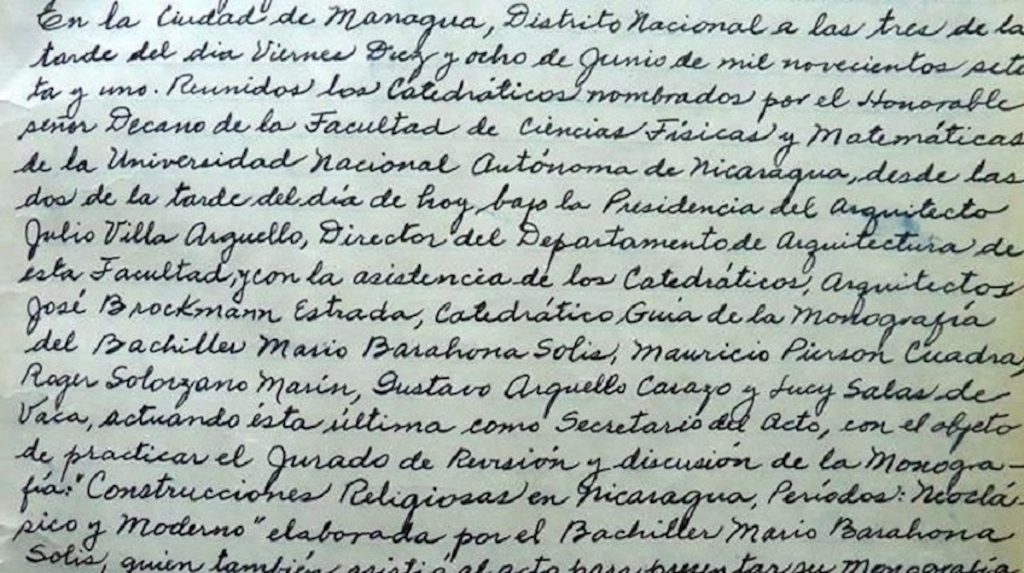 En la Ciudad de Managua, Distrito Nacional a las tres de la
tarde del dia Viernes Diez y ocho de Junio de mil novecientos sete
ta y uno. Reunidos los Catedráticos nombrados por el Honorable
señor Decano de la Facultad de Ciencias Físicas y Matemáticas
de la Universidad Nacional Autónoma de Nicaragua, desde las
dos de la tarde del día de hoy, bajo la Presidencia del Arquitecto
Julio Villa Arguello, Director del Departamento de Arquitectura de
esta Facultad, y con la asistencia de los Catedráticos, Arquitectos
José Brockmann Estrada, Catedrático Guía de la Monografía
del Bachiller Mario Barahona Solis, Mauricio Pierson Cuadra,
Roger Solorzano Marín, Gustavo Arguello Carazo y Lucy Salas de
Vaca, actuando ésta última como Secretario del Acto, con el objeto
de practicar el Jurado de Revisión y discusión de la Monogra-
fía: "Construcciones Religiosas en Nicaragua, Períodos: Neoclá-
sico y Moderno" elaborada por el Bachiller Mario Barahona
Solis, quien también asistió al acto para presentar su Monografía